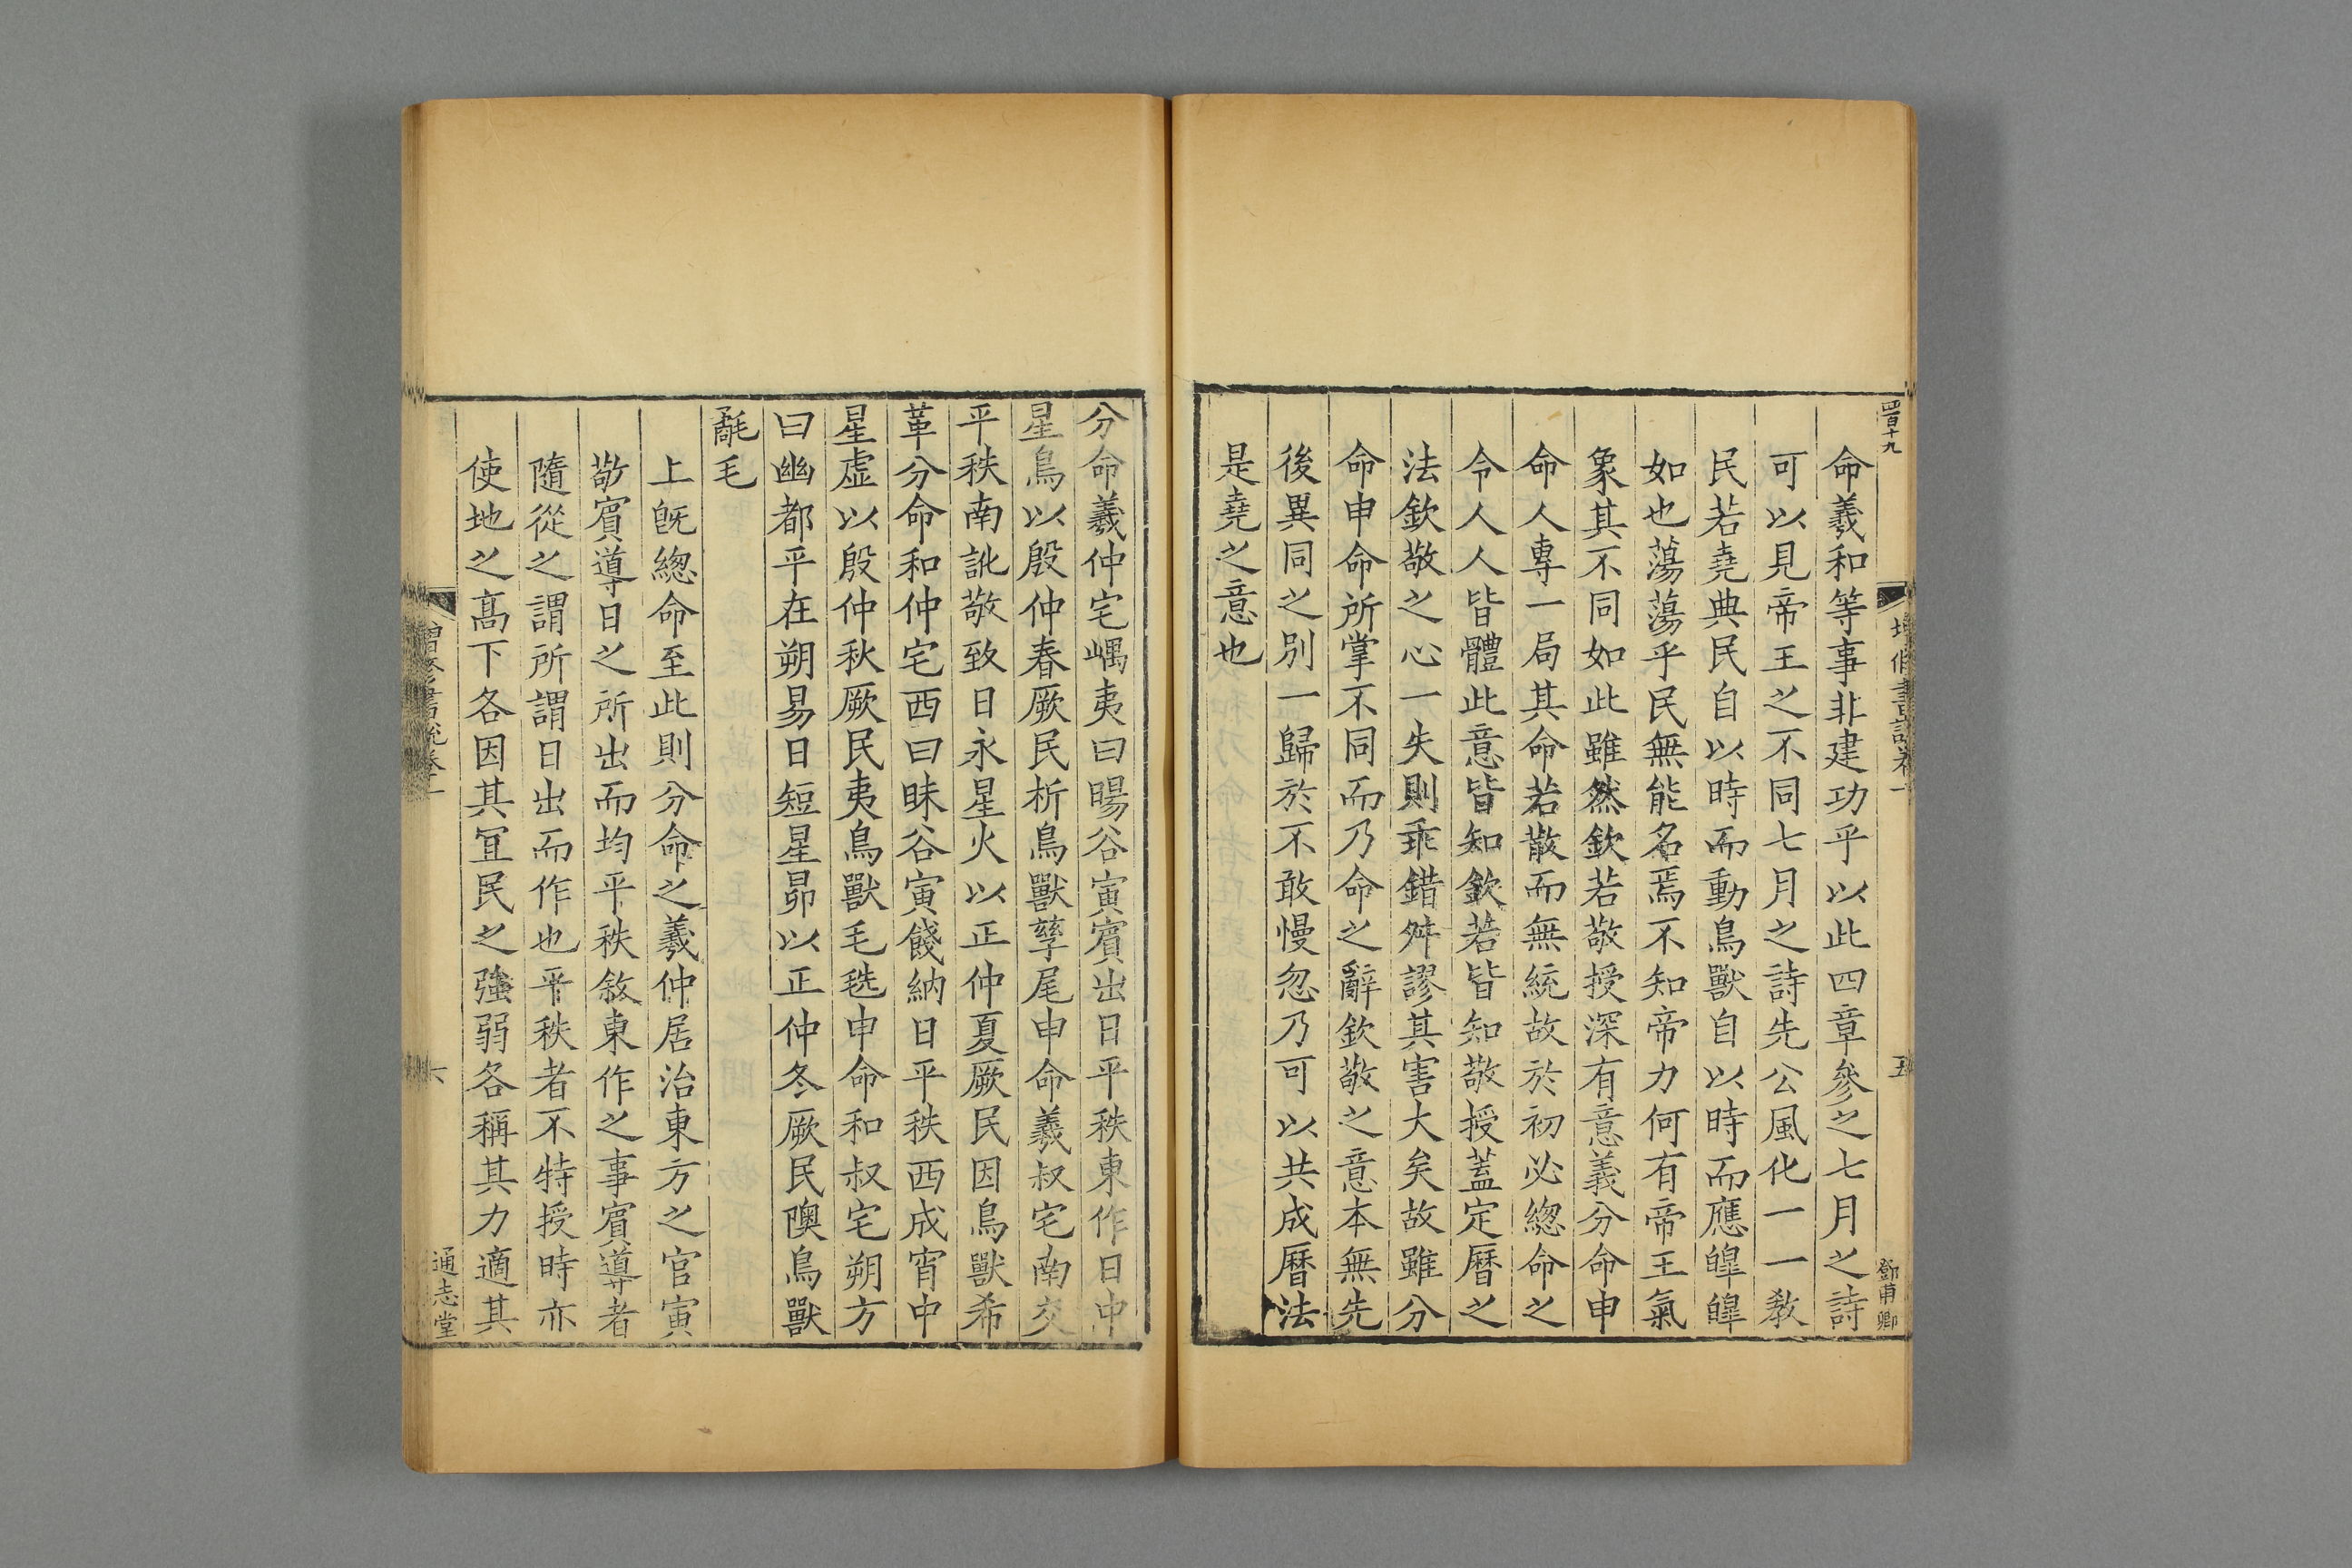 四百十九
增修書說卷一
五
鄧甫卿
命羲和等事非建功乎以此四章參之七月之詩
可以見帝王之不同七月之詩先公風化一一敎
民若堯典民自以時而動鳥獸自以時而應皥皥
如也蕩蕩乎民無能名焉不知帝力何有帝王氣
象其不同如此雖然欽若敬授深有意義分命申
命人專一局其命若散而無統故於初必緫命之
令人人皆體此意皆知欽若皆知敬授蓋定曆之
法欽敬之心一失則乖錯舛謬其害大矣故雖分
命申命所掌不同而乃命之辭欽敬之意本無先
後異同之別一歸於不敢慢忽乃可以共成曆法
是堯之意也
分命羲仲宅嵎夷曰暘谷寅賓出日平秩東作日中
星鳥以殷仲春厥民析鳥獸孳尾申命羲叔宅南交
平秩南訛敬致日永星火以正仲夏厥民因鳥獸希
革分命和仲宅西曰昧谷寅餞納日平秩西成宵中
星虛以殷仲秋厥民夷鳥獸毛毨申命和叔宅朔方
曰幽都平在朔易日短星昴以正仲冬厥民隩鳥獸
氄毛
上旣緫命至此則分命之羲仲居治東方之官寅
敬賓導日之所出而均平秩敘東作之事賓導者
隨從之謂所謂日出而作也平秩者不特授時亦
使地之高下各因其宜民之強弱各稱其力適其
增修書說卷一
六
通志堂